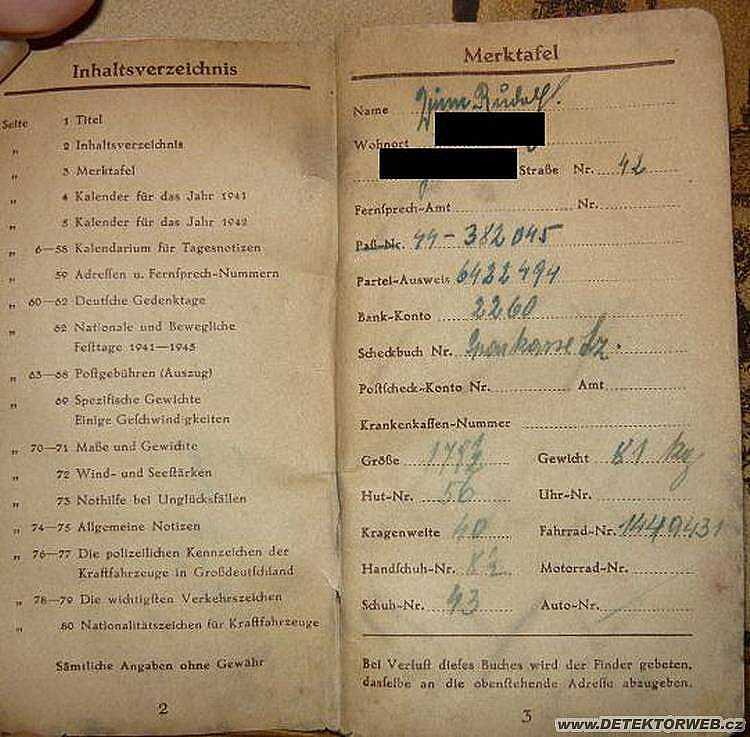 Inhaltsverzeichnis
Seite 1 Titel
„ 2 Inhaltsverzeichnis
„ 3 Merktafel
„ 4 Kalender für das Jahr 1941
„ 5 Kalender für das Jahr 1942
„ 6—58 Kalendarium für Tagesnotizen
„ 59 Adreſſen u. Fernſprech-Nummern
„ 60—62 Deutſche Gedenktage
„ 62 Nationale und Bewegliche
Feſttage 1941—1945
„ 63—68 Poſtgebühren (Auszug)
„ 69 Spezifiſche Gewichte
Einige Geſchwindigkeiten
„ 70—71 Maße und Gewichte
„ 72 Wind- und Seeſtärken
„ 73 Nothilfe bei Unglücksfällen
„ 74—75 Allgemeine Notizen
„ 76—77 Die polizeilichen Kennzeichen der
Kraftfahrzeuge in Großdeutſchland
„ 78—79 Die wichtigſten Verkehrszeichen
„ 80 Nationalitätszeichen für Kraftfahrzeuge
Sämtliche Angaben ohne Gewähr
2
Merktafel
Name Rudolf.
Wohnort
Straße Nr. 42
Fernſprech-Amt Nr.
Paß-Nr. 44-382045
Partei-Ausweis 6422494
Bank-Konto 2260
Scheckbuch Nr. Sparkasse
Poſtſcheck-Konto Nr. Amt
Krankenkaſſen-Nummer
Größe Gewicht 81 kg
Hut-Nr. 56 Uhr-Nr.
Kragenweite 40 Fahrrad-Nr. 1449431
Handſchuh-Nr. 8½ Motorrad-Nr.
Schuh-Nr. 43 Auto-Nr.
Bei Verluſt dieſes Buches wird der Finder gebeten,
dasſelbe an die obenſtehende Adreſſe abzugeben.
3
www.DETEKTORWEB.cz